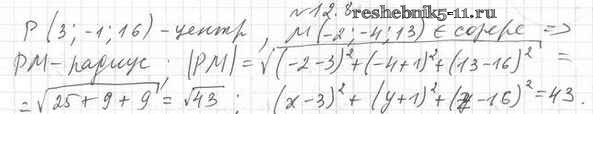 №12.8
reshebnik5-11.ru
P(3; -1; 16) - центр, M(-2; -4; 13) ∈ сфере =>
PM - радиус; |PM| = √((-2-3)² + (-4+1)² + (13-16)²) =
= √(25+9+9) = √43; (x-3)² + (y+1)² + (z-16)² = 43.